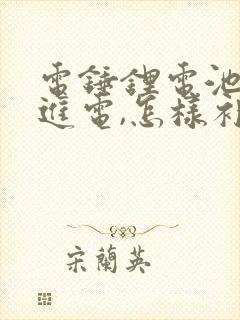 電錘鋰電池
進電,怎樣補
宋蘭英